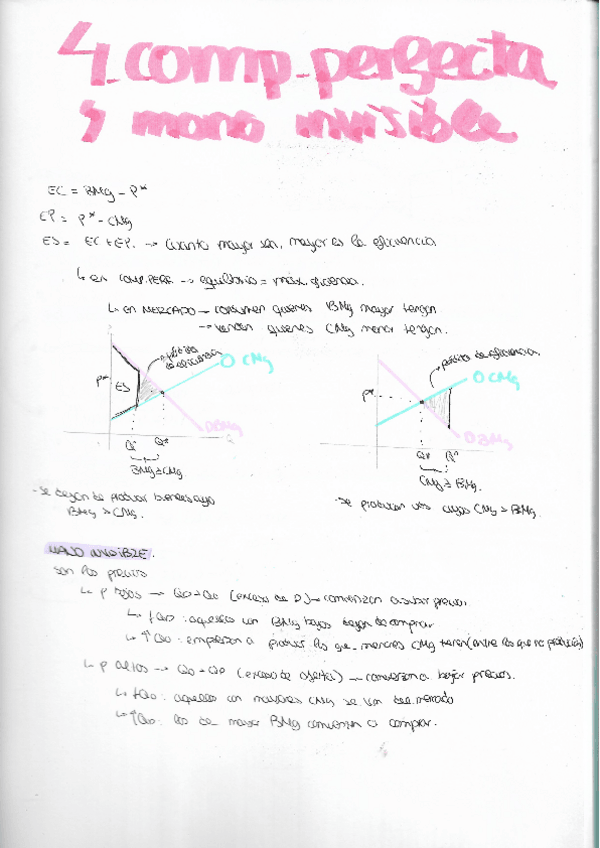 4. comp. perfecta
y mano invisible
EC = BMg - P*
EP = P* - CMg
ES = EC + EP. → Cuanto mayor sea, mayor es la eficiencia
↳ en comp. PERF → equilibrio = máx. eficiencia.
↳ en MERCADO → consumen quienes BMg mayor tengan
→ venden quienes CMg menor tengan.
pérdida de eficiencia
O CMg
P*
ES
D BMg
Q
Q*
BMg > CMg
pérdida de eficiencia
O CMg
P*
D BMg
Q*
CMg > BMg.
- se dejan de producir bienes cuyo
BMg > CMg.
- se producen uds cuyos CMg > BMg.
MANO INVISIBLE.
son los precios
↳ P bajos → QD > QO (exceso de D) → comienzan a subir precios
↳ ↓QD: aquellos con BMg bajos dejan de comprar
↳ ↑QO: empiezan a producir los que menores CMg tienen (entre los que no producían)
↳ P altos → QO > QD (exceso de oferta) → comienzan a bajar precios.
↳ ↓QO: aquellos con mayores CMg se van del mercado
↳ ↑QD: los de mayor BMg comienzan a comprar.